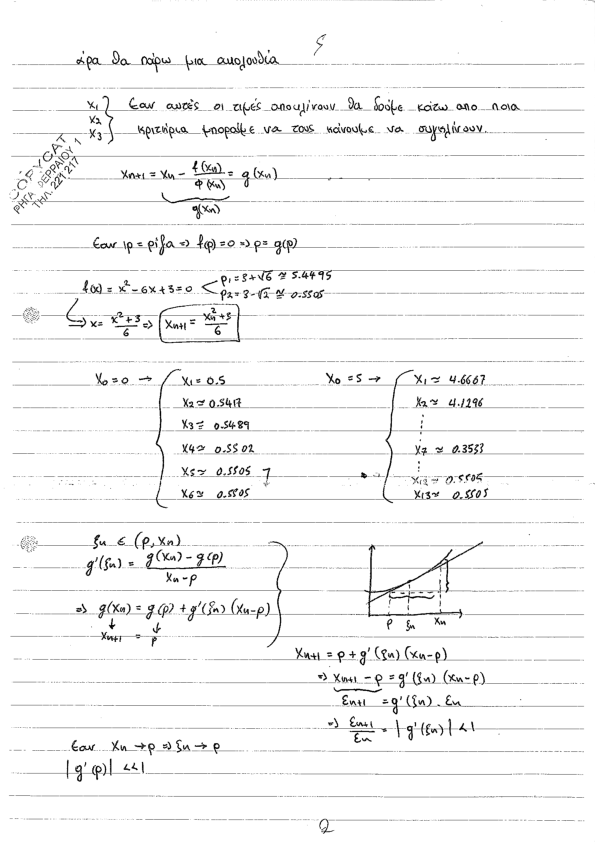 άρα θα πάρω μια ακολουθία
x₁
x₂
x₃
Εαν αυτές οι τιμές αποκλίνουν θα δούμε κάτω απο ποια
κριτήρια μπορούμε να τους κάνουμε να συγκλίνουν.
COPYCAT
ΡΗΓΑ ΦΕΡΡΑΙΟΥ 1
ΤΗΛ. 221.217
xₙ₊₁ = xₙ - f(xₙ)/φ(xₙ) = g(xₙ)
g(xₙ)
Εαν ρ = ρίζα => f(ρ) = 0 => ρ = g(ρ)
f(x) = x² - 6x + 3 = 0
ρ₁ = 3+√6 ≅ 5.4495
ρ₂ = 3-√2 ≅ 0.5505
=> x = (x²+3)/6 => xₙ₊₁ = (xₙ²+3)/6
x₀ = 0 →
x₁ = 0.5
x₂ ≃ 0.5417
x₃ ≃ 0.5489
x₄ ≃ 0.5502
x₅ ≃ 0.5505
x₆ ≃ 0.5505
x₀ = 5 →
x₁ ≃ 4.6667
x₂ ≃ 4.1296
x₇ ≃ 0.3553
x₁₂ ≃ 0.5505
x₁₃ ≃ 0.5505
ξₙ ∈ (ρ, xₙ)
g'(ξₙ) = (g(xₙ) - g(ρ))/(xₙ - ρ)
=> g(xₙ) = g(ρ) + g'(ξₙ) (xₙ-ρ)
xₙ₊₁ = ρ
ρ ξₙ xₙ
xₙ₊₁ = ρ + g'(ξₙ) (xₙ-ρ)
=> xₙ₊₁ - ρ = g'(ξₙ) (xₙ-ρ)
εₙ₊₁ = g'(ξₙ) . εₙ
=> εₙ₊₁/εₙ = |g'(ξₙ)| < 1
Εαν xₙ → ρ => ξₙ → ρ
|g'(ρ)| << 1
2